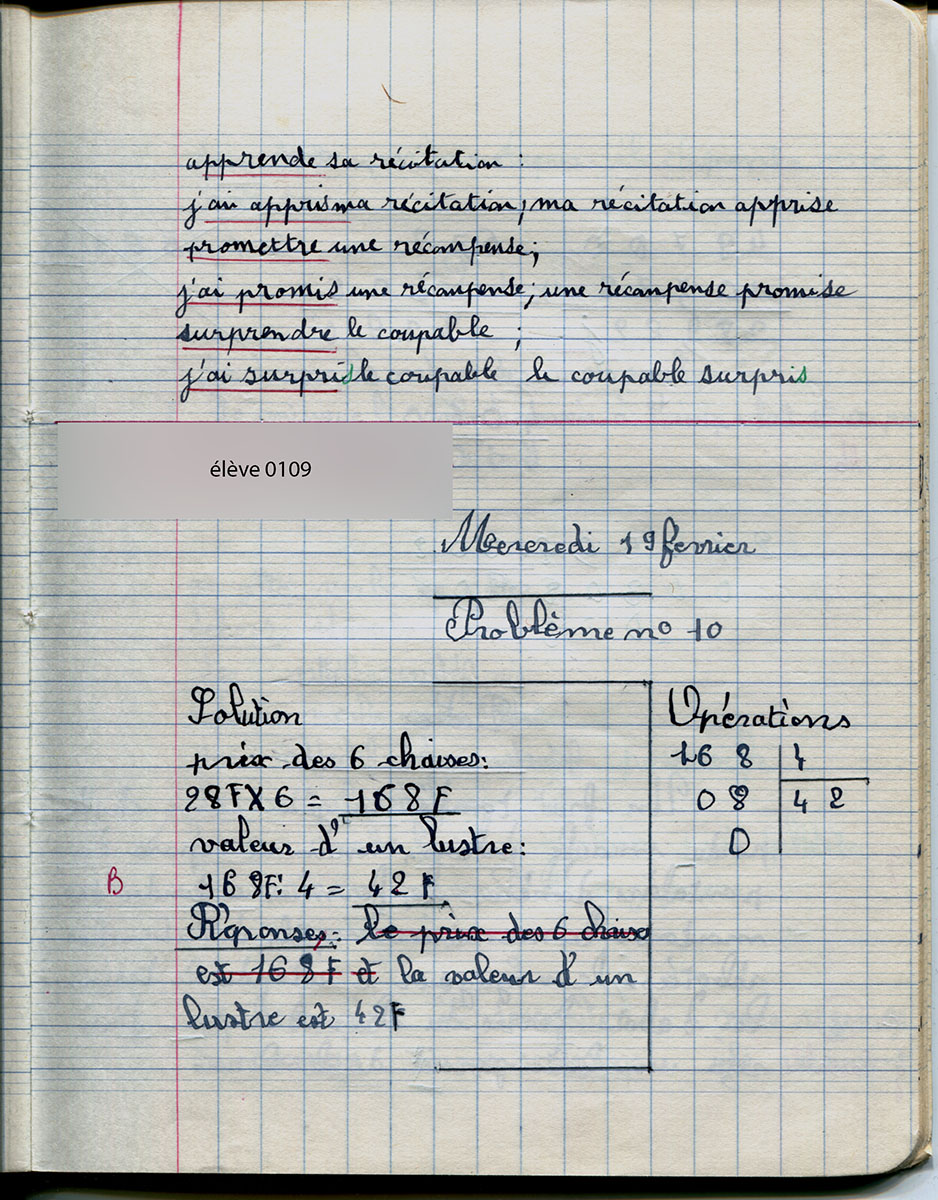 apprende sa récitation :
j'ai appris ma récitation ; ma récitation apprise
promettre une récompense ;
j'ai promis une récompense ; une récompense promise
surprendre le coupable ;
j'ai surpris le coupable le coupable surpris
élève 0109
Mercredi 19 fevrier
Problème no 10
Solution
Opérations
prix des 6 chaises :
168 4
28F X 6 = 168 F
08 42
valeur d'un lustre :
0
B 168F : 4 = 42 F
Réponses : le prix des 6 chaises
est 168 F et la valeur d'un
lustre est 42F